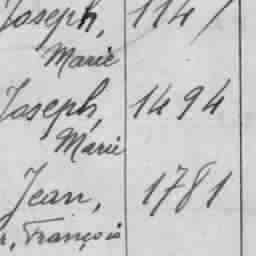 Joseph, 1147
Marie
Joseph, 1494
Marie
Jean, 1781
François